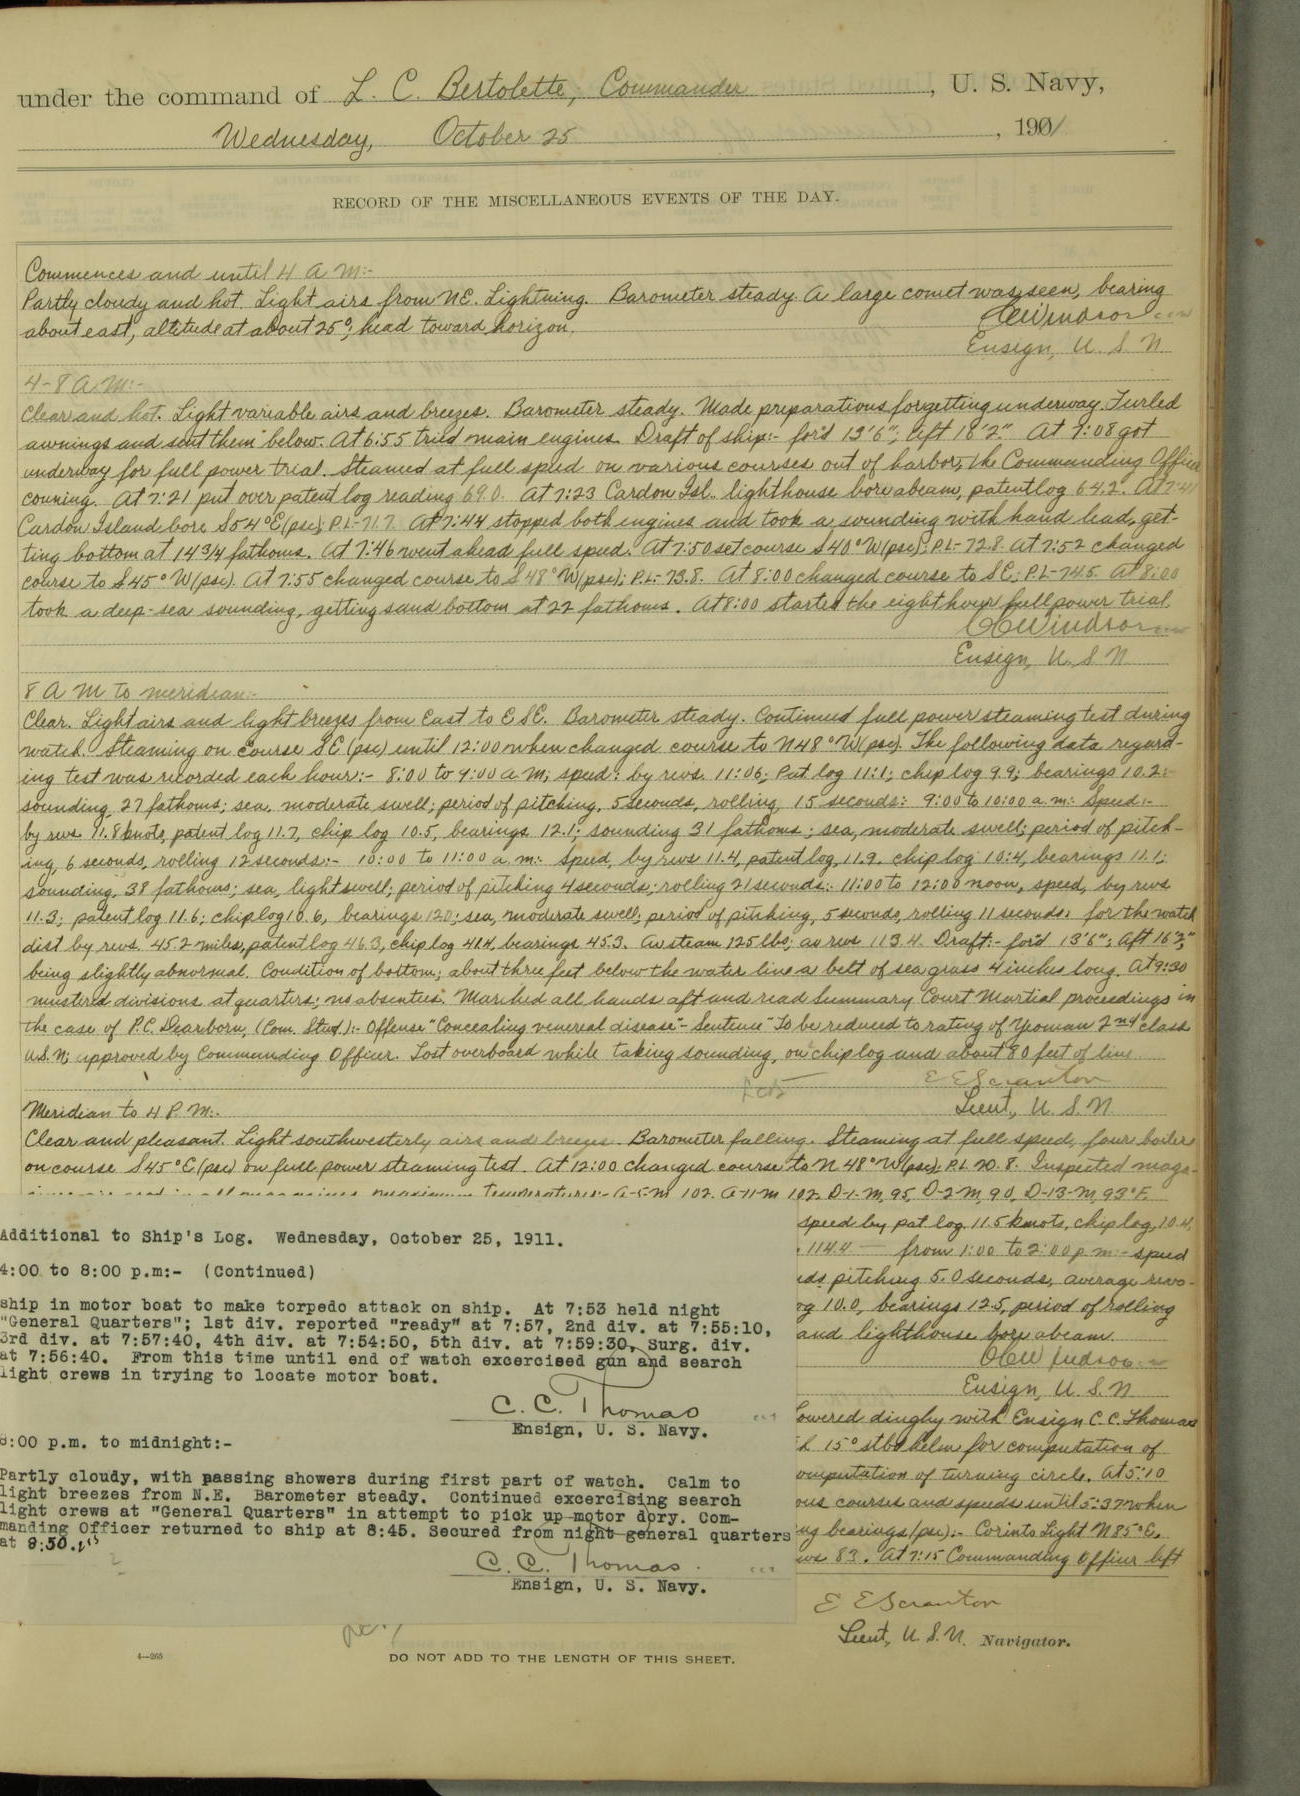 under the command of L. C. Bertolette, Commander, U. S. Navy,
Wednesday, October 25, 1901
RECORD OF THE MISCELLANEOUS EVENTS OF THE DAY.
Commences and until 4 A M:-
Partly cloudy and hot. Light airs from NE. Lightning. Barometer steady. A large comet was seen, bearing
about east, altitude at about 25°, head toward horizon.
Windsor
Ensign, U. S. N.
4-8 A.M:-
Clear and hot. Light variable airs and breezes. Barometer steady. Made preparations for getting underway. Furled
awnings and sent them below. At 6:55 tried main engines. Draft of ship:- for'd 13'6"; aft 16'2". At 7:08 got
underway for full power trial. Steamed at full speed on various courses out of harbor, the Commanding Officer
conning. At 7:21 put over patent log reading 69.0. At 7:23 Cardon Isl. lighthouse bore abeam, patent log 64.2. At 7:41
Cardon Island bore S54°E(psc); P.L-71.7. At 7:44 stopped both engines and took a sounding with hand lead, get-
ting bottom at 14 3/4 fathoms. At 7:46 went ahead full speed. At 7:50 set course S40°W(psc); P.L- 72.8. At 7:52 changed
course to S45°W(psc). At 7:55 changed course to S48°W(psc); P.L- 73.8. At 8:00 changed course to SE; P.L-74.5. At 8:00
took a deep-sea sounding, getting sand bottom at 22 fathoms. At 8:00 started the eight hour full power trial.
Windsor
Ensign, U. S. N
8 A M to meridian:-
Clear. Light airs and light breezes from East to ESE. Barometer steady. Continued full power steaming test during
watch. Steaming on course SE (psc) until 12:00 when changed course to N48°W(psc). The following data regard-
ing test was recorded each hour:- 8:00 to 9:00 a.m; speed: by revs. 11.06; Pat. log 11.1; chip log 9.9; bearings 10.2:
sounding, 27 fathoms; sea, moderate swell; period of pitching, 5 seconds, rolling 15 seconds: 9:00 to 10:00 a.m: Speed:-
by revs 11.8 knots, patent log 11.7, chip log 10.5, bearings 12.1; sounding 31 fathoms; sea, moderate swell; period of pitch-
ing, 6 seconds, rolling 12 seconds:- 10:00 to 11:00 a.m: speed, by revs 11.4, patent log, 11.9. chip log 10.4, bearings 11.1;
sounding, 38 fathoms; sea, light swell; period of pitching 4 seconds; rolling 21 seconds: 11:00 to 12:00 noon, speed, by revs
11.3; patent log 11.6; chip log 10.6, bearings 12.0; sea, moderate swell; period of pitching, 5 seconds, rolling 11 seconds. for the watch
dist by revs. 45.2 miles, patent log 46.3, chip log 41.4, bearings 45.3. Av steam 125 lbs; av revs 113.4. Draft:- for'd 13'6"; Aft 16'2";
being slightly abnormal. Condition of bottom; about three feet below the water line a belt of sea grass 4 inches long. At 9:30
mustered divisions at quarters: no absentees. Marched all hands aft and read Summary Court Martial proceedings in
the case of P.C. Dearborn, (Com. Stwd):- Offense "Concealing venereal disease"- Sentence "To be reduced to rating of Yeoman 2nd class
U.S.N; approved by Commanding Officer. Lost overboard while taking sounding, on chip log and about 80 feet of line.
E E Scranton
Lieut., U. S. N.
Meridian to 4 P. M:-
Clear and pleasant. Light southwesterly airs and breezes. Barometer falling. Steaming at full speed, four boilers
on course S45°E(psc) on full power steaming test. At 12:00 changed course to N 48°W(psc); P.L 20.8. Inspected maga-
maximum temperatures:- A-5-M 102. A-11-M 102. D-1-M, 95, D-2-M, 90, D-13-M, 93°F.
speed by pat. log. 11.5 knots, chip log, 10.4,
. 114.4 — from 1:00 to 2:00 p.m:- speed
pitching 5.0 seconds, average revo-
10.0, bearings 12.5, period of rolling
and lighthouse bore abeam.
Ensign, U. S. N
lowered dinghy with Ensign C.C. Thomas
15° stbd helm for computation of
computation of turning circle. At 5:10
courses and speeds until 5:37 when
bearings (psc):- Corinto Light N85°E.
83. At 7:15 Commanding Officer left
E E Scranton
Lieut, U. S. N. Navigator.
Additional to Ship's Log. Wednesday, October 25, 1911.
4:00 to 8:00 p.m:- (Continued)
ship in motor boat to make torpedo attack on ship. At 7:53 held night
"General Quarters"; 1st div. reported "ready" at 7:57, 2nd div. at 7:55:10,
3rd div. at 7:57:40, 4th div. at 7:54:50, 5th div. at 7:59:30, Surg. div.
at 7:56:40. From this time until end of watch excercised gun and search
light crews in trying to locate motor boat.
C. C. Thomas
Ensign, U. S. Navy.
8:00 p.m. to midnight:-
Partly cloudy, with passing showers during first part of watch. Calm to
light breezes from N.E. Barometer steady. Continued excercising search
light crews at "General Quarters" in attempt to pick up motor dory. Com-
manding Officer returned to ship at 8:45. Secured from night general quarters
at 8:50.
C. C. Thomas.
Ensign, U. S. Navy.
4—265
DO NOT ADD TO THE LENGTH OF THIS SHEET.